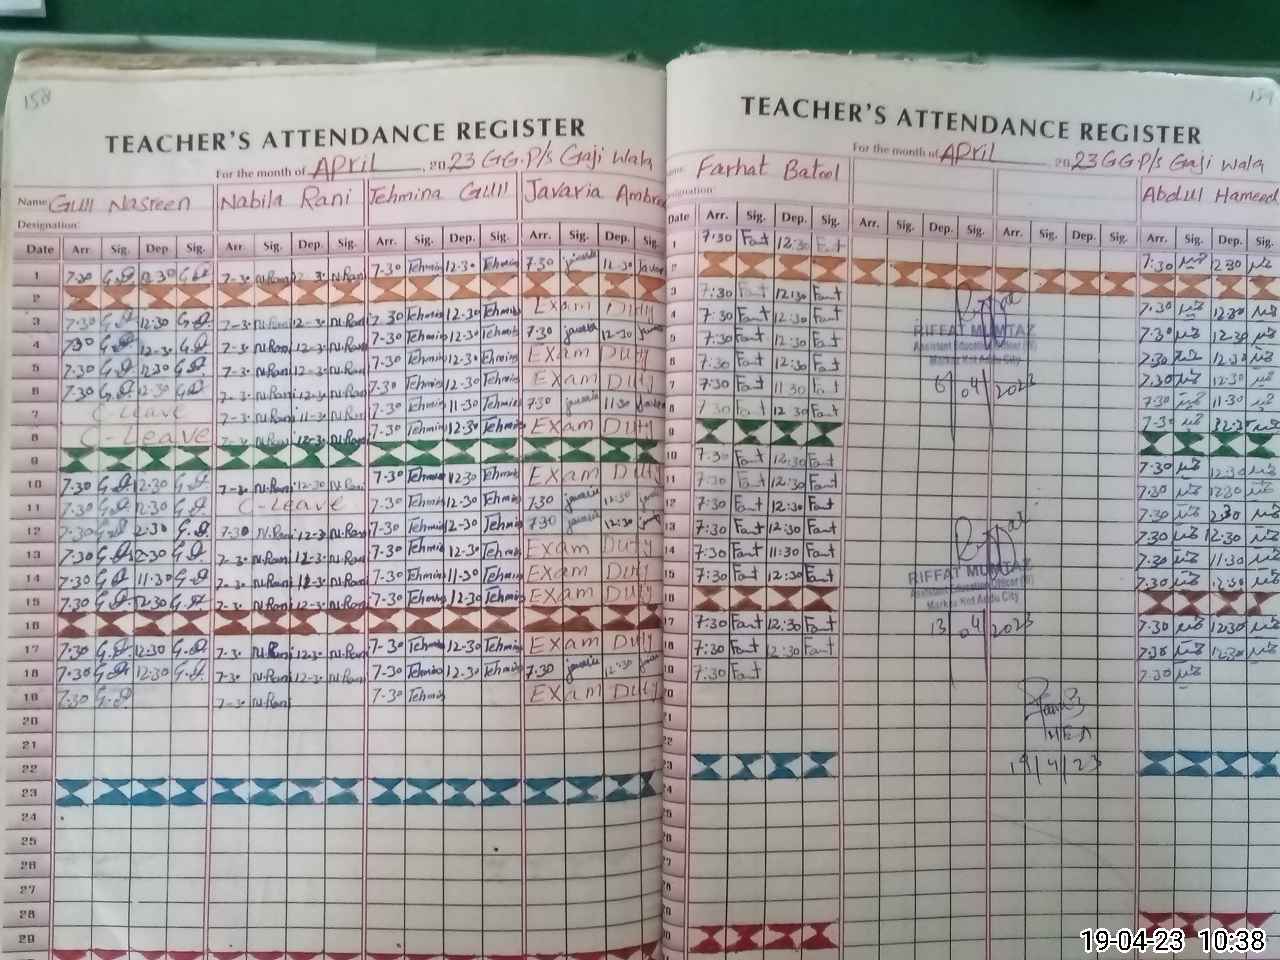 158
TEACHER'S ATTENDANCE REGISTER
For the month of APRIL, 2023 GG.P/S Gaji Wala
Name: Gull Nasreen Nabila Rani Tehmina Gull Javaria Ambre
Designation:
Date Arr. Sig. Dep. Sig. Arr. Sig. Dep. Sig. Arr. Sig. Dep. Sig. Arr. Sig. Dep. Sig.
1 7-30 G.D 12.30 G.D 7-30 N.Rani 12-30 N.Rani 7-30 Tehmin 12-30 Tehmin 7:30 javaria 12-30
2
3 7:30 G.D 12:30 G.D 7-30 N.Rani 12-30 N.Rani 7-30 Tehmin 12-30 Tehmin Exam Duty
4 7:30 G.D 12-30 G.D 7-30 N.Rani 12-30 N.Rani 7-30 Tehmin 12-30 Tehmin 7:30 javaria 12-30
5 7:30 G.D 12:30 G.D 7-30 N.Rani 12-30 N.Rani 7-30 Tehmin 12-30 Tehmin Exam Duty
6 7:30 G.D 12:30 G.D 7-30 N.Rani 12-30 N.Rani 7-30 Tehmin 12-30 Tehmin Exam Duty
7 C-Leave 7-30 N.Rani 11-30 N.Rani 7-30 Tehmin 11-30 Tehmin 7:30 javaria 11:30
8 C-Leave 7-30 N.Rani 12-30 N.Rani 7-30 Tehmin 12:30 Tehmin Exam Duty
9
10 7:30 G.D 12:30 G.D 7-30 N.Rani 12:30 N.Rani 7-30 Tehmin 12:30 Tehmin Exam Duty
11 7:30 G.D 12:30 G.D C-Leave 7-30 Tehmin 12-30 Tehmin 7:30 javaria 12:30
12 7:30 G.D 12:30 G.D 7:30 N.Rani 12-30 N.Rani 7-30 Tehmin 12-30 Tehmin 7:30 javaria 12:30
13 7:30 G.D 12:30 G.D 7-30 N.Rani 12-30 N.Rani 7-30 Tehmin 12-30 Tehmin Exam Duty
14 7:30 G.D 11:30 G.D 7-30 N.Rani 11-30 N.Rani 7-30 Tehmin 11-30 Tehmin Exam Duty
15 7:30 G.D 12:30 G.D 7-30 N.Rani 12-30 N.Rani 7-30 Tehmin 12-30 Tehmin Exam Duty
16
17 7:30 G.D 12:30 G.D 7-30 N.Rani 12-30 N.Rani 7-30 Tehmin 12-30 Tehmin Exam Duty
18 7:30 G.D 12:30 G.D 7-30 N.Rani 12-30 N.Rani 7-30 Tehmin 12-30 Tehmin 7:30 javaria 12:30
19 7:30 G.D 7-30 N.Rani 7-30 Tehmin Exam Duty
20
21
22
23
24
25
26
27
28
29
159
TEACHER'S ATTENDANCE REGISTER
For the month of APRIL 2023 GG P/S Gaji Wala
Farhat Batool Abdul Hameed
Designation:
Date Arr. Sig. Dep. Sig. Arr. Sig. Dep. Sig. Arr. Sig. Dep. Sig. Arr. Sig. Dep. Sig.
1 7:30 Fart 12:30 Fart 7:30 12:30
2
3 7:30 Fart 12:30 Fart 7:30 12:30
4 7:30 Fart 12:30 Fart 7:30 12:30
5 7:30 Fart 12:30 Fart 7:30 12:30
6 7:30 Fart 12:30 Fart 7:30 12:30
7 7:30 Fart 11:30 Fart 7:30 11:30
8 7:30 Fart 12:30 Fart 7:30 12:30
9
10 7:30 Fart 12:30 Fart 7:30 12:30
11 7:30 Fart 12:30 Fart 7:30 12:30
12 7:30 Fart 12:30 Fart 7:30 12:30
13 7:30 Fart 12:30 Fart 7:30 12:30
14 7:30 Fart 11:30 Fart 7:30 11:30
15 7:30 Fart 12:30 Fart 7:30 12:30
17 7:30 Fart 12:30 Fart 7:30 12:30
18 7:30 Fart 12:30 Fart 7:30 12:30
7:30 Fart 7:30
RIFFAT MUMTAZ
Assistant Education Officer (W)
Markaz Kot Addu City
6/04/2023
RIFFAT MUMTAZ
Assistant Education Officer (W)
Markaz Kot Addu City
13/04/2023
MEA
19/4/23
19-04-23 10:38